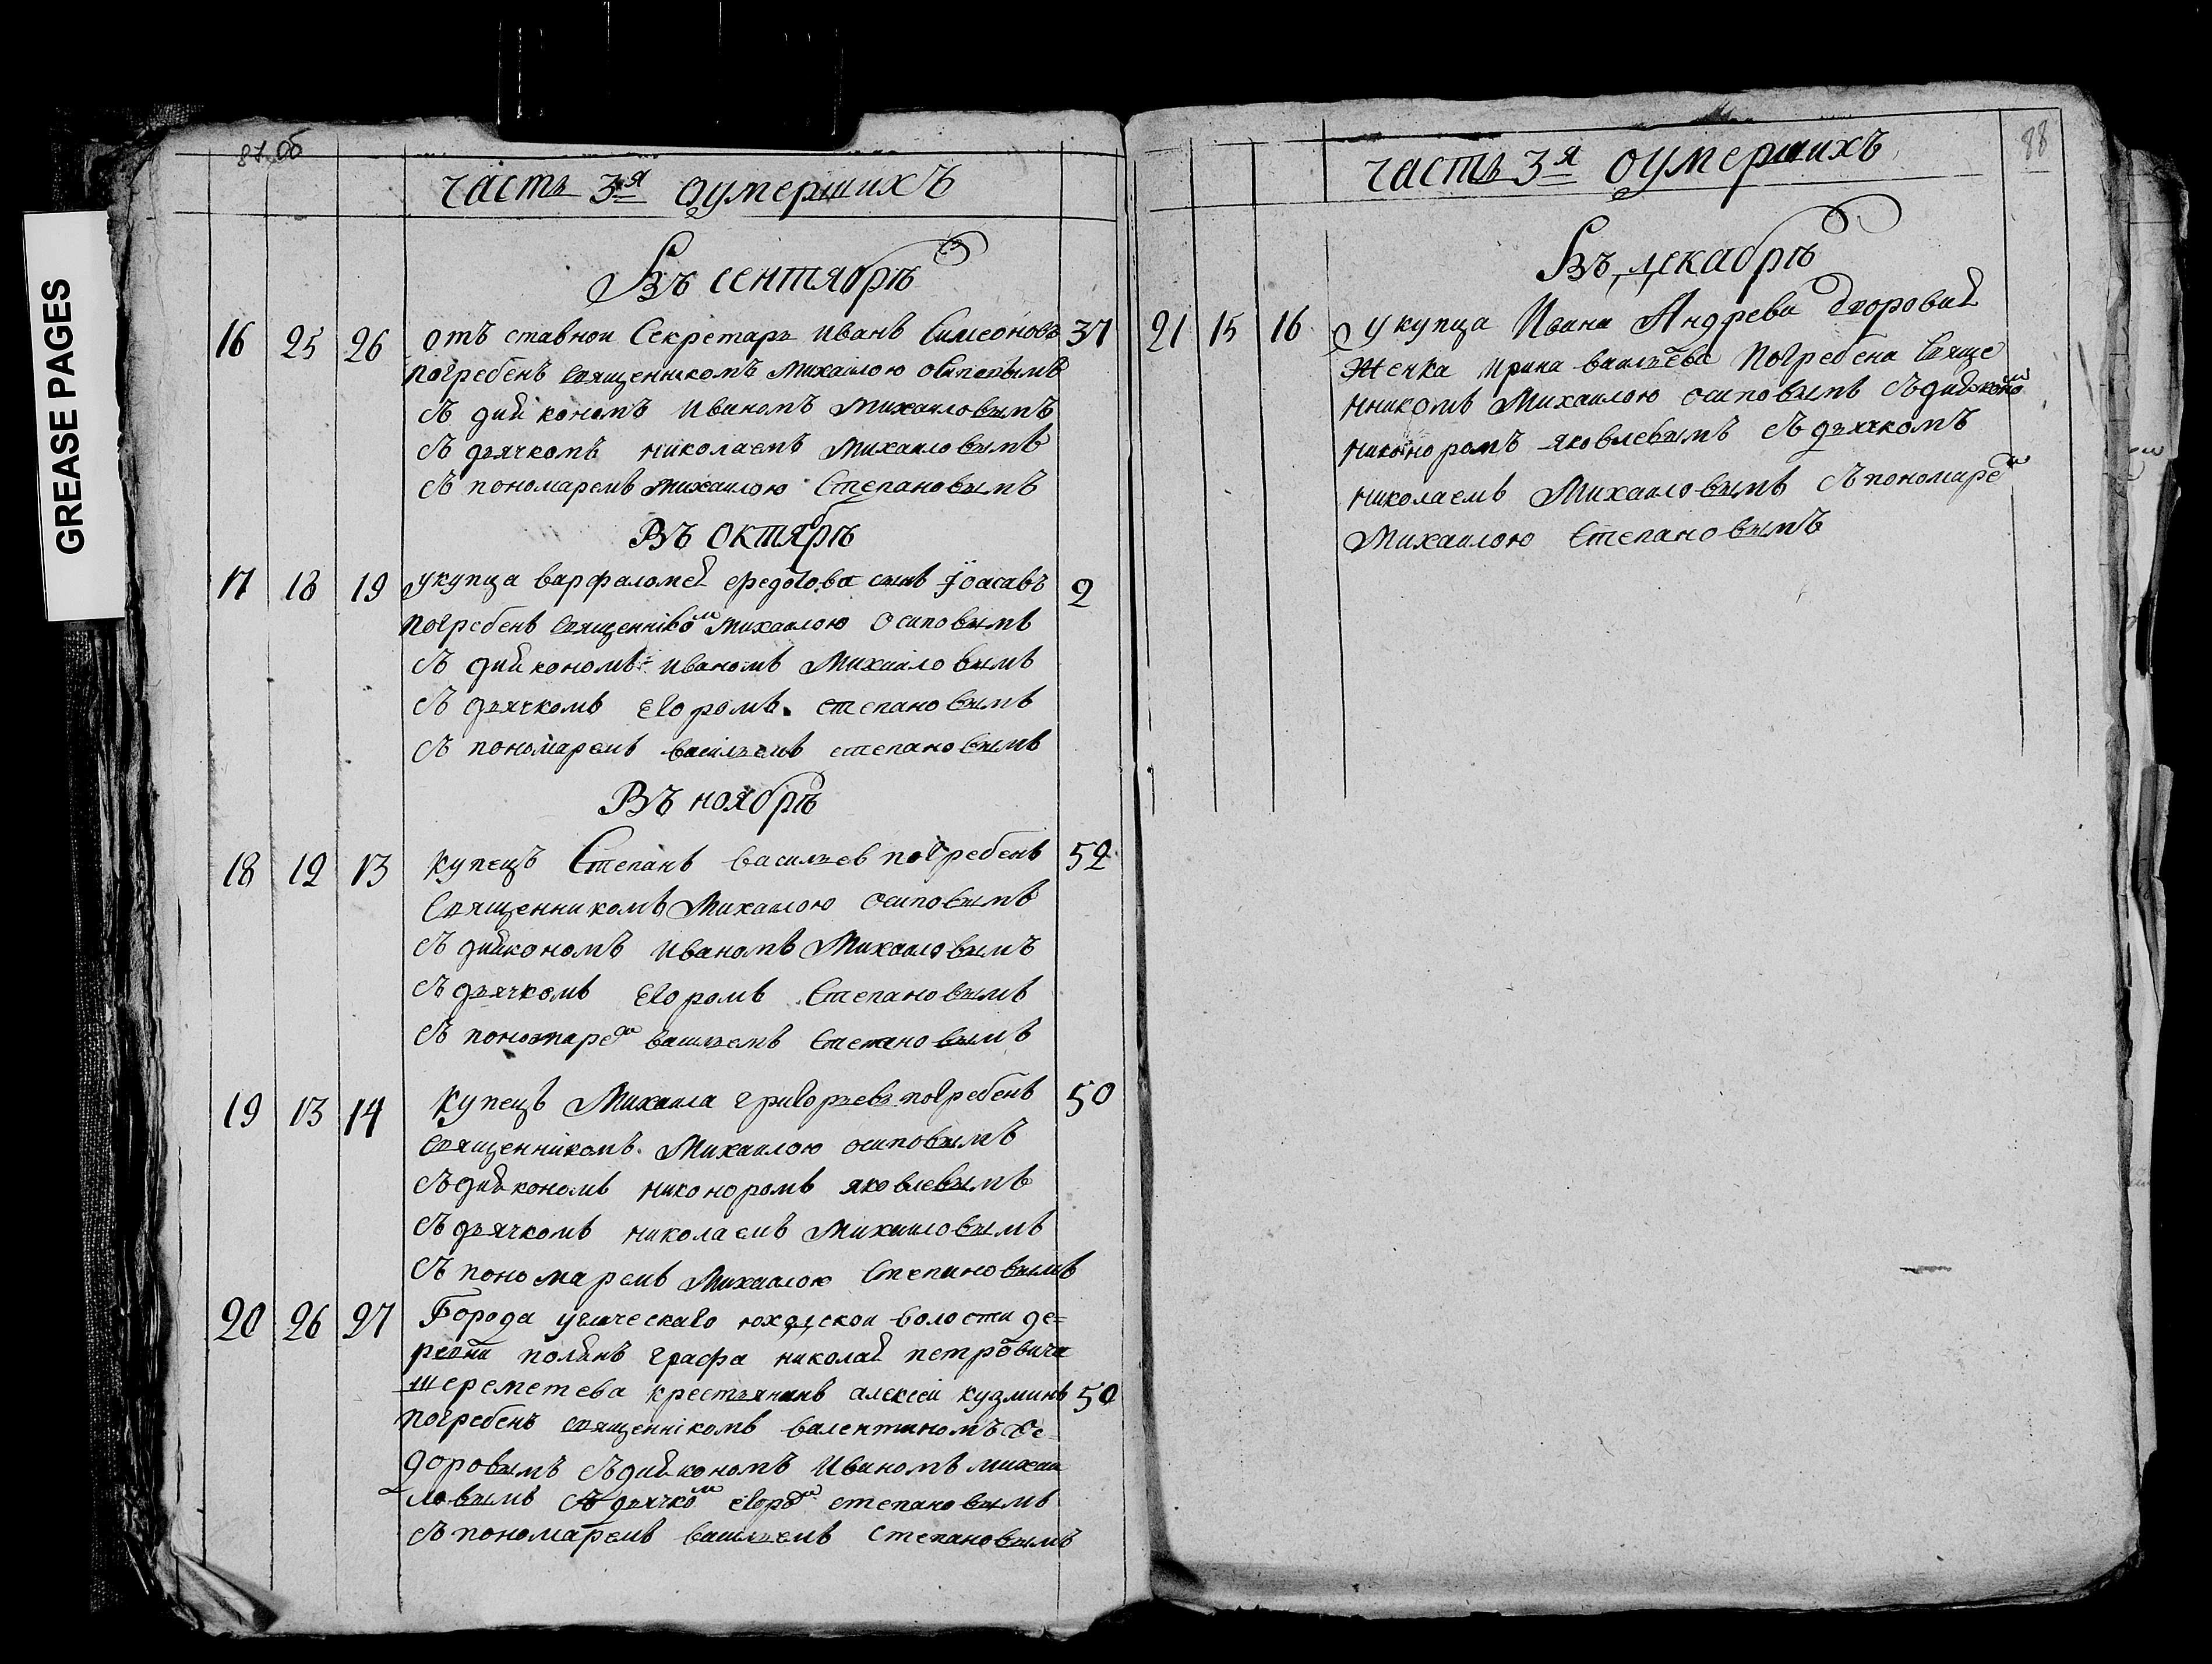 GREASE PAGES
87 об
часть 3я оумершихъ
Въ сентябрѣ
16 25 26 отъ ставнои Секретарь иванъ Симеоновъ 37
погребенъ священникомъ михаилою осиповымъ
съ дийкономъ иваномъ михаиловымъ
съ дьячкомъ николаемъ михаиловымъ
съ пономаремъ михаилою Степановымъ
Въ октябрѣ
17 18 19 укупца варфаломей федотова сынъ Іоасавъ 2
погребенъ священнікомъ михаилою осиповымъ
съ дийкономъ иваномъ михаиловымъ
съ дьячкомъ егоромъ степановымъ
съ пономаремъ васильемъ степановымъ
Въ ноябрѣ
18 12 13 купецъ Степанъ васильев погребенъ 52
священникомъ михаилою осиповымъ
съ дийкономъ иваномъ михаиловымъ
съ дьячкомъ егоромъ Степановымъ
съ пономарем васильемъ Степановымъ
19 13 14 купецъ михаила григорьевъ погребенъ 50
священнікомъ михаилою осиповымъ
съ дийкономъ никоноромъ яковлевымъ
съ дьячкомъ николаемъ михаиловымъ
съ пономаремъ михаилою Степановымъ
20 26 27 Города углическаго юхоцскои волости де=
ревни полянъ графа николай петровича
шереметева крестьянинъ алексеи кузминъ 50
погребенъ священнікомъ валентиномъ Фе-
доровымъ съ дийкономъ иваномъ михаи
ловымъ съ дьячком егором степановымъ
съ пономаремъ васильемъ степановымъ
88
часть 3я оумершихъ
Въ декабрѣ
21 15 16 укупца Ивана Андрева дворовай
женка ирина васильева погребена свяще
нникомъ михаилою осиповымъ съ дийконом
никоноромъ яковлевымъ съ дьячкомъ
николаемъ михаиловымъ съ пономарем
михаилою Степановымъ